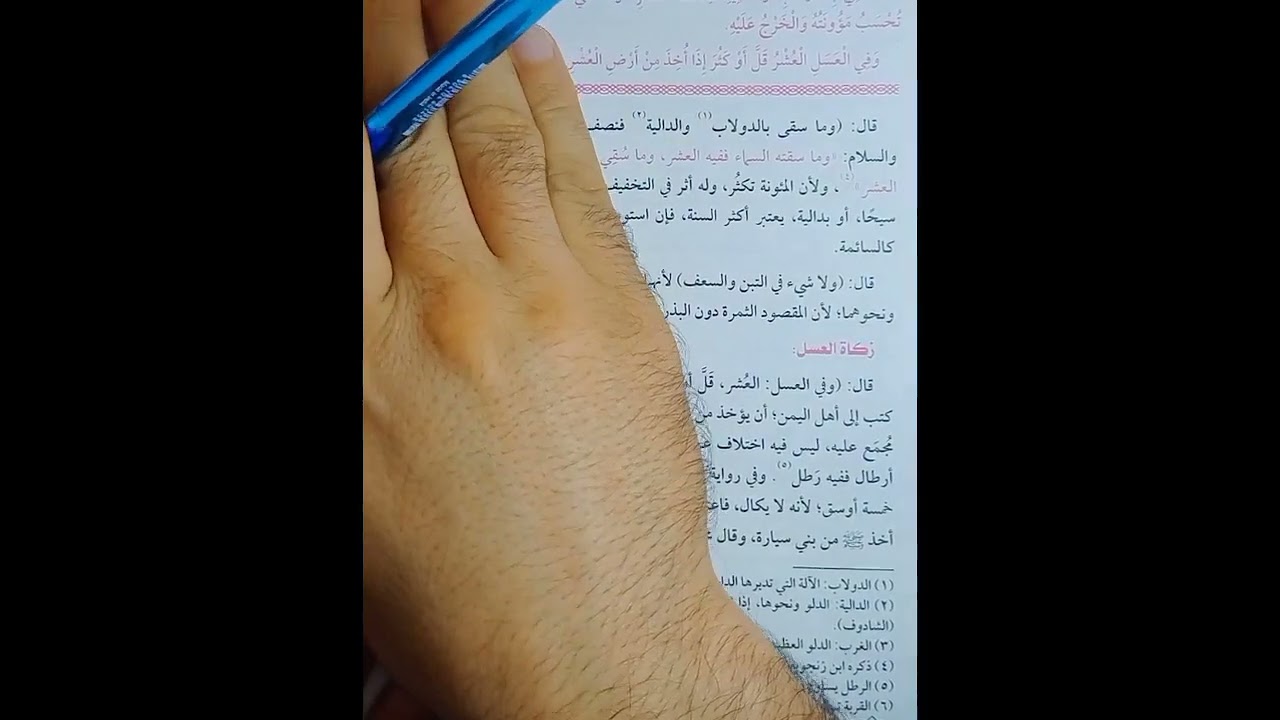 تُحْسَبُ مَؤُونَتُهُ وَالْخَرْجُ عَلَيْهِ.
وَفِي الْعَسَلِ الْعُشْرُ قَلَّ أَوْ كَثُرَ إِذَا أُخِذَ مِنْ أَرْضِ الْعُشْرِ
قال: (وما سقى بالدولاب(١) والدالية(٢) فنصف
والسلام: «وما سقته السماء ففيه العشر، وما سُقِي
العشر»(٤)، ولأن المئونة تكثُر، وله أثر في التخفيف
سيحًا، أو بدالية، يعتبر أكثر السنة، فإن استو
كالسائمة.
قال: (ولا شيء في التبن والسعف) لأنها
ونحوهما؛ لأن المقصود الثمرة دون البذر
زكاة العسل:
قال: (وفي العسل: العُشر، قَلَّ
كتب إلى أهل اليمن؛ أن يؤخذ من
مُجمَع عليه، ليس فيه اختلاف
أرطال ففيه رَطل(٥). وفي رواية
خمسة أوسق؛ لأنه لا يكال،
أخذ ﷺ من بني سيارة، وقال
(١) الدولاب: الآلة التي تديرها
(٢) الدالية: الدلو ونحوها، إذا
(الشادوف).
(٣) الغرب: الدلو
(٤) ذكره ابن زنجويه
(٥) الرطل
(٦) القربة